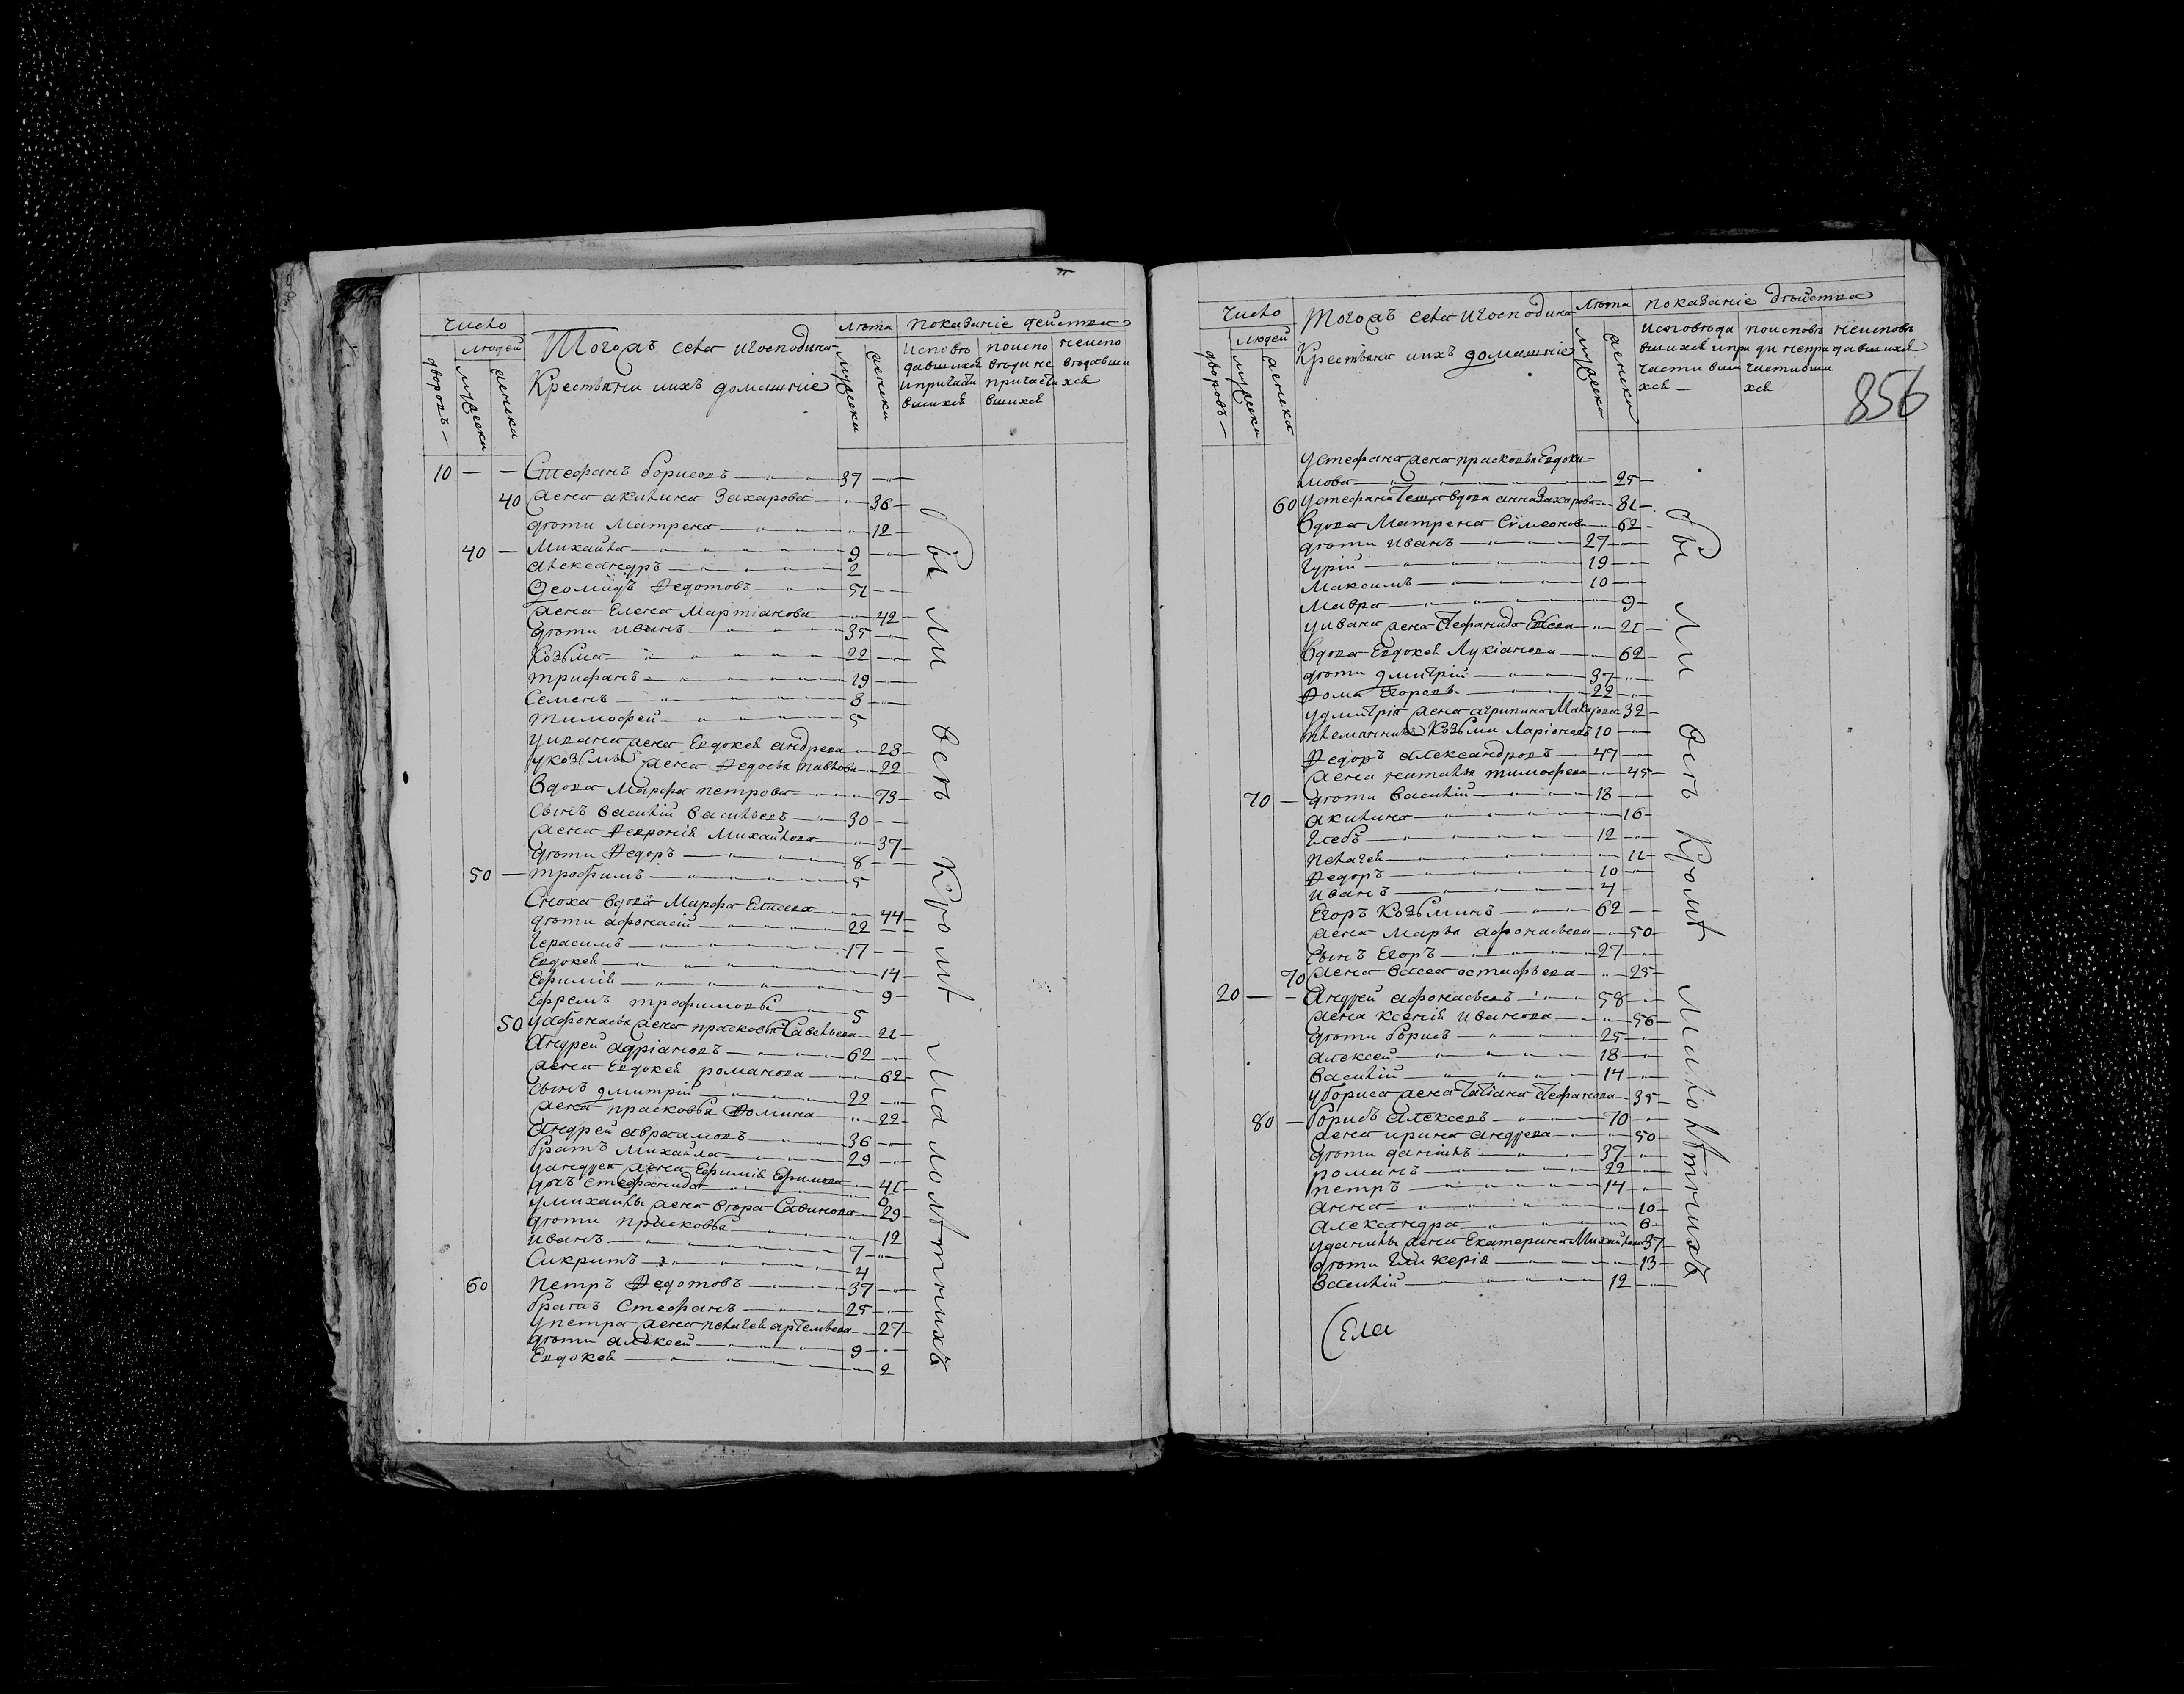 Число
Людей
дворовъ
мужеска
женска
Тогожъ села и господина
Крестьяни и ихъ домашние
лѣта
мужеска
женска
показаніе действа
исповѣ
давшихся
и причасти
вшихся
поиспо
вѣди не
причасти
вшихся
неиспо
вѣдавши
хся
10 — — Стефанъ борисовъ 37
40 жена акилина Захарова 36
дѣти Матрена 12
40 — Михайла 9
александръ 2
Ѳеолидъ Ѳедотовъ 51
жена Елена Мартіанова 42
дѣти иванъ 35
Козьма 22
трифанъ 19
Семенъ 8
тимофей 5
у ивана жена Евдокея андреева 28
у козьмы жена Ѳедосья павлова 22
вдова Марфа петрова 73
сынъ василій васильевъ 30
жена Ѳевронія Михайлова 37
дѣти Ѳедоръ 8
50 — трофимъ 5
Сноха вдова Марфа Елисеева 44
дѣти афонасій 22
Герасимъ 17
Евдокея 14
Ефимія 9
Ефремъ трофимовъ 5
50 у афонасья жена прасковья Савельева 21
Андрей адріановъ 62
жена Евдокея романова 62
сынъ дмитрій 22
жена прасковья Ѳомина 22
Андрей авраамовъ 36
братъ Михайла 29
у андрея жена Ефимія Ефимова 41
дочь стефанида 6
у михайлы жена вѣра Савинова 29
дѣти прасковья 12
иванъ 7
Сикритъ 4
60 петръ Ѳедотовъ 37
братъ Стефанъ 25
у петра жена пелагея артемьева 27
дѣти алексей 9
Евдокея 2
были всѣ кромѣ малолѣтнихъ
Число
людей
дворовъ
мужеска
женска
Тогожъ села и господина
Крестьяни и ихъ домашніе
лѣта
мужеска
женска
показаніе дѣйства
исповѣда
вшихся и при
части вши
хся
поисповѣ
ди непри
частивши
хся
неисповѣ
давшихся
856
у стефана жена прасковья Евдоки=
мова 25
60 у стефана теща вдова анна Захарова 81
вдова Матрена Сѵмеонова 62
дѣти иванъ 27
Гурій 19
Максимъ 10
Мавра 9
у ивана жена Стефанида Елсеева 21
вдова Евдокея Лукіанова 62
дѣти дмитрій 37
Ѳома Егоровъ 22
у дмитрія жена агрипина Макарова 32
племянникъ Козьма Ларіоновъ 10
Ѳедоръ александровъ 47
жена наталья тимофеева 45
70 — дѣти василій 18
акилина 16
Глебъ 12
пелагея 11
Ѳедоръ 10
иванъ 4
Егоръ Козьминъ 62
жена Марья афонасьева 50
сынъ Егоръ 27
70 жена васса остафьева 25
20 — — Андрей афонасьевъ 58
жена ксенія иванова 56
дѣти борисъ 25
алексей 18
василій 14
у бориса жена татіана Стефанова 35
80 — борисъ алексеевъ 70
жена ирина андреева 50
дѣти данилъ 37
романъ 22
петръ 14
анна 10
александра 8
у данилы жена Екатерина Михайлова 37
дѣти Гликерія 13
василій 12
были всѣ кромѣ малолѣтнихъ
Села